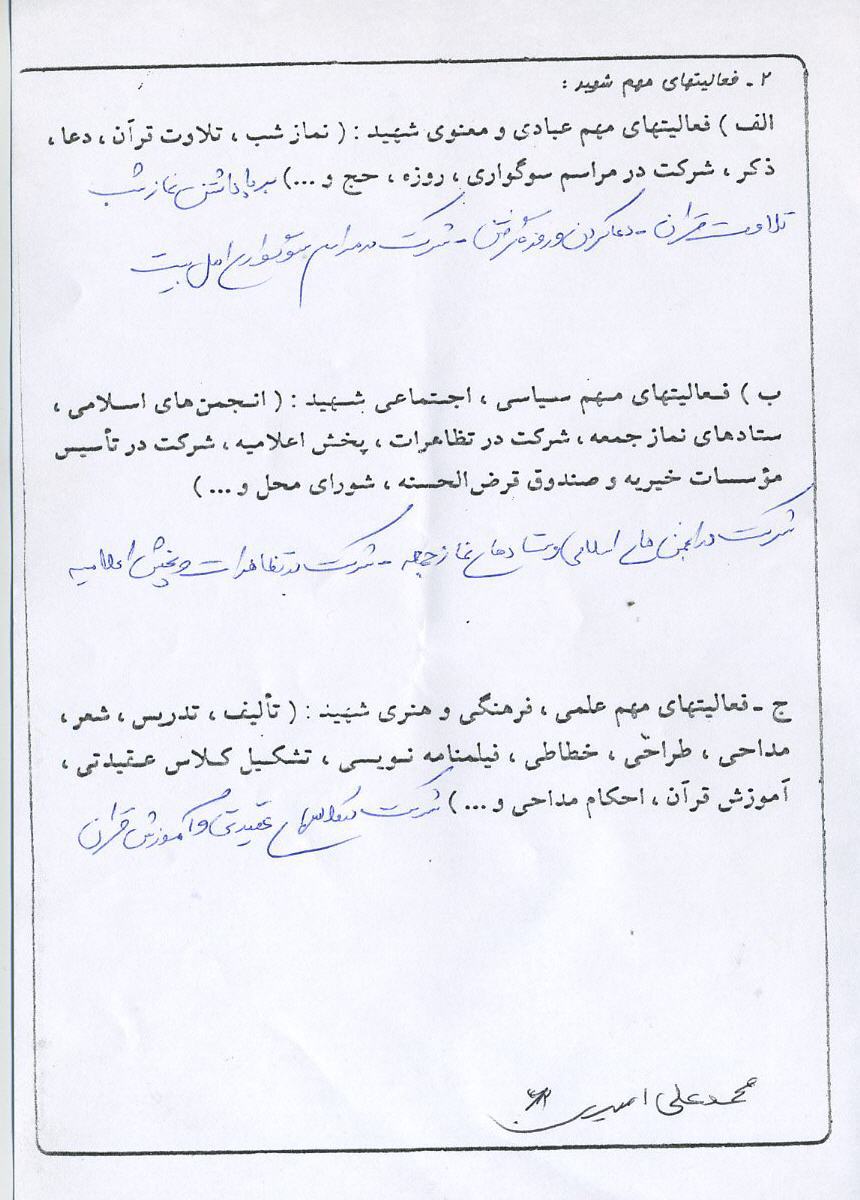 ۲ ـ فعالیتهای مهم شهید :
الف ) فعالیتهای مهم عبادی و معنوی شهید : ( نماز شب ، تلاوت قرآن ، دعا ،
ذکر ، شرکت در مراسم سوگواری ، روزه ، حج و ...) برپا داشتن نماز شب
تلاوت قرآن - دعا کردن و روزه گرفتن - شرکت در مراسم سوگواری اهل بیت
ب ) فعالیتهای مهم سیاسی ، اجتماعی شهید : ( انجمن‌های اسلامی ،
ستادهای نماز جمعه ، شرکت در تظاهرات ، پخش اعلامیه ، شرکت در تأسیس
مؤسسات خیریه و صندوق قرض‌الحسنه ، شورای محل و ... )
شرکت در انجمن های اسلامی و ستادهای نماز جمعه - شرکت در تظاهرات و پخش اعلامیه
ج ـ فعالیتهای مهم علمی ، فرهنگی و هنری شهید : ( تألیف ، تدریس ، شعر ،
مداحی ، طراحی ، خطاطی ، فیلمنامه نویسی ، تشکیل کلاس عقیدتی ،
آموزش قرآن ، احکام مداحی و ... ) شرکت در کلاسهای عقیدتی و آموزش قرآن
محمد علی امیری